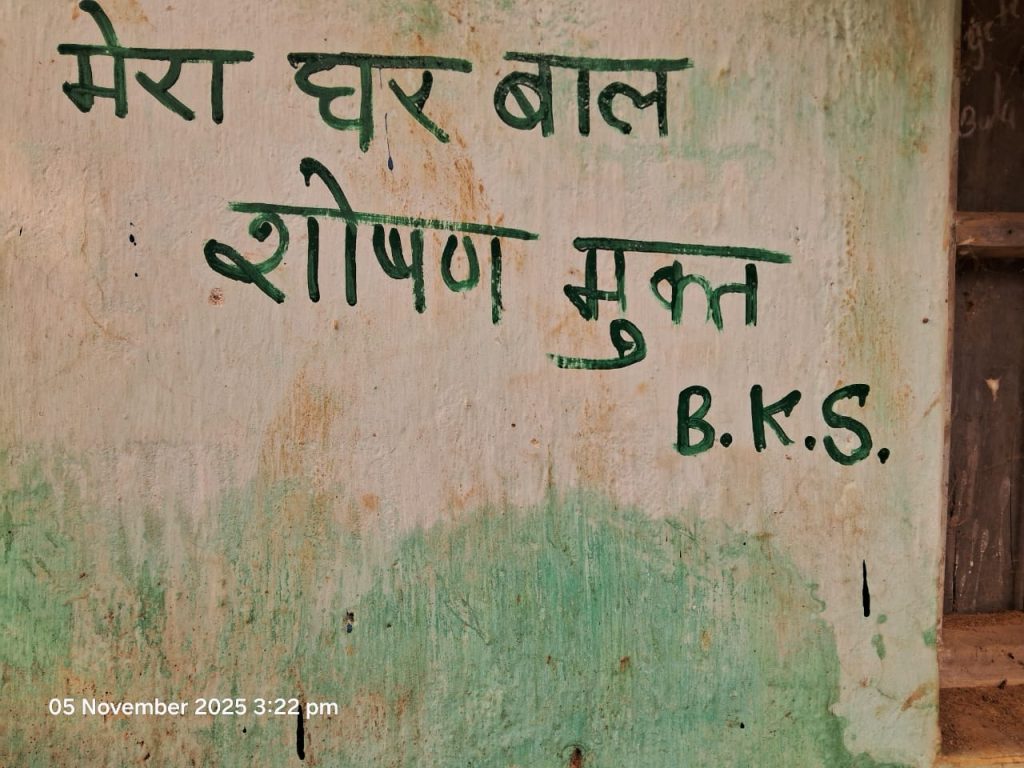 मेरा घर बाल
शोषण मुक्त
B.K.S.
05 November 2025 3:22 pm